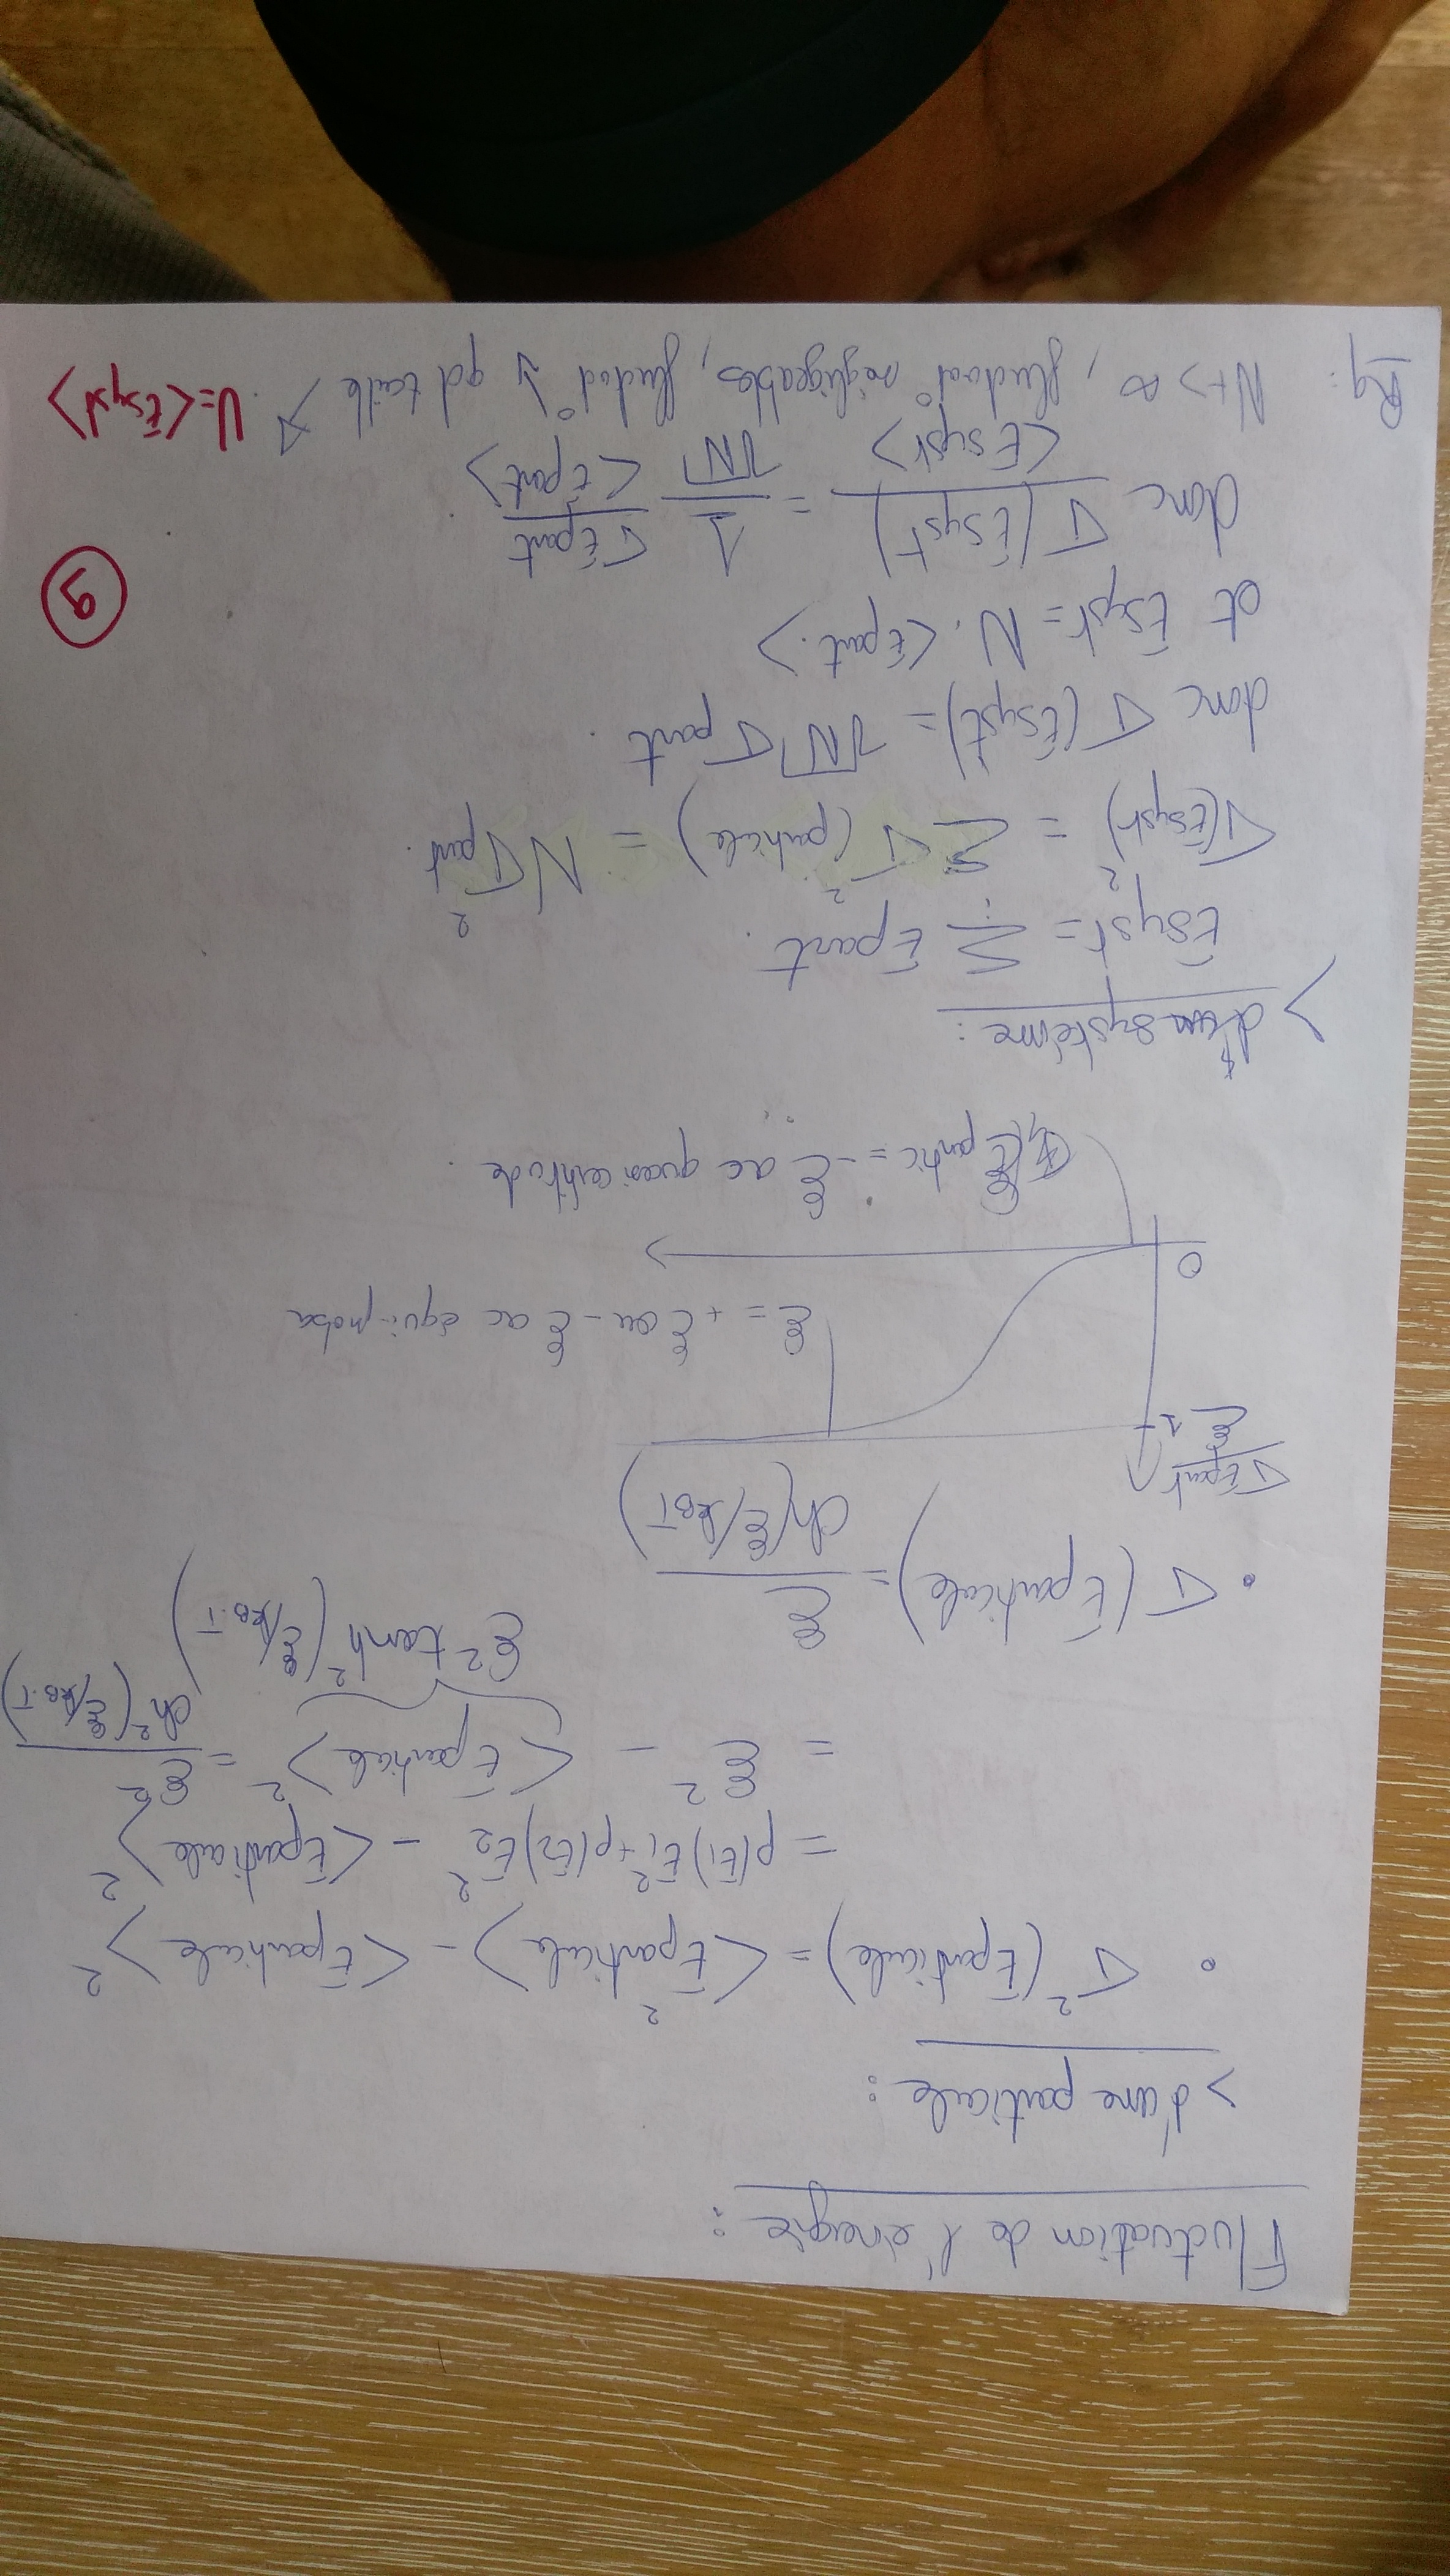 Fluctuation de l'énergie :
> d'une particule :
• σ²(Eparticule) = <E²particule> - <Eparticule>²
= p(E1)E1² + p(E2)E2² - <Eparticule>²
= ε² - <Eparticule>² = ε²/ch²(ε/kB.T)
ε² tanh²(ε/kB.T)
• σ(Eparticule) = ε/ch(ε/kBT)
σEpart/ε
1
ε = +ε ou -ε ac équi-proba
0
Epartic = -ε ac quasi certitude.
> d'un système :
Esyst = Σi Epart.
σ²(Esyst) = Σ σ²(particule) = Nσ²part.
donc σ(Esyst) = √N σpart.
et Esyst = N.<Epart.>
donc σ(Esyst)/<Esyst> = 1/√N σEpart/<Epart>.
9
Rq : N → ∞, fluctuat° négligeables, fluctuat° ↘ qd taille ↗.
U=<Esyst>